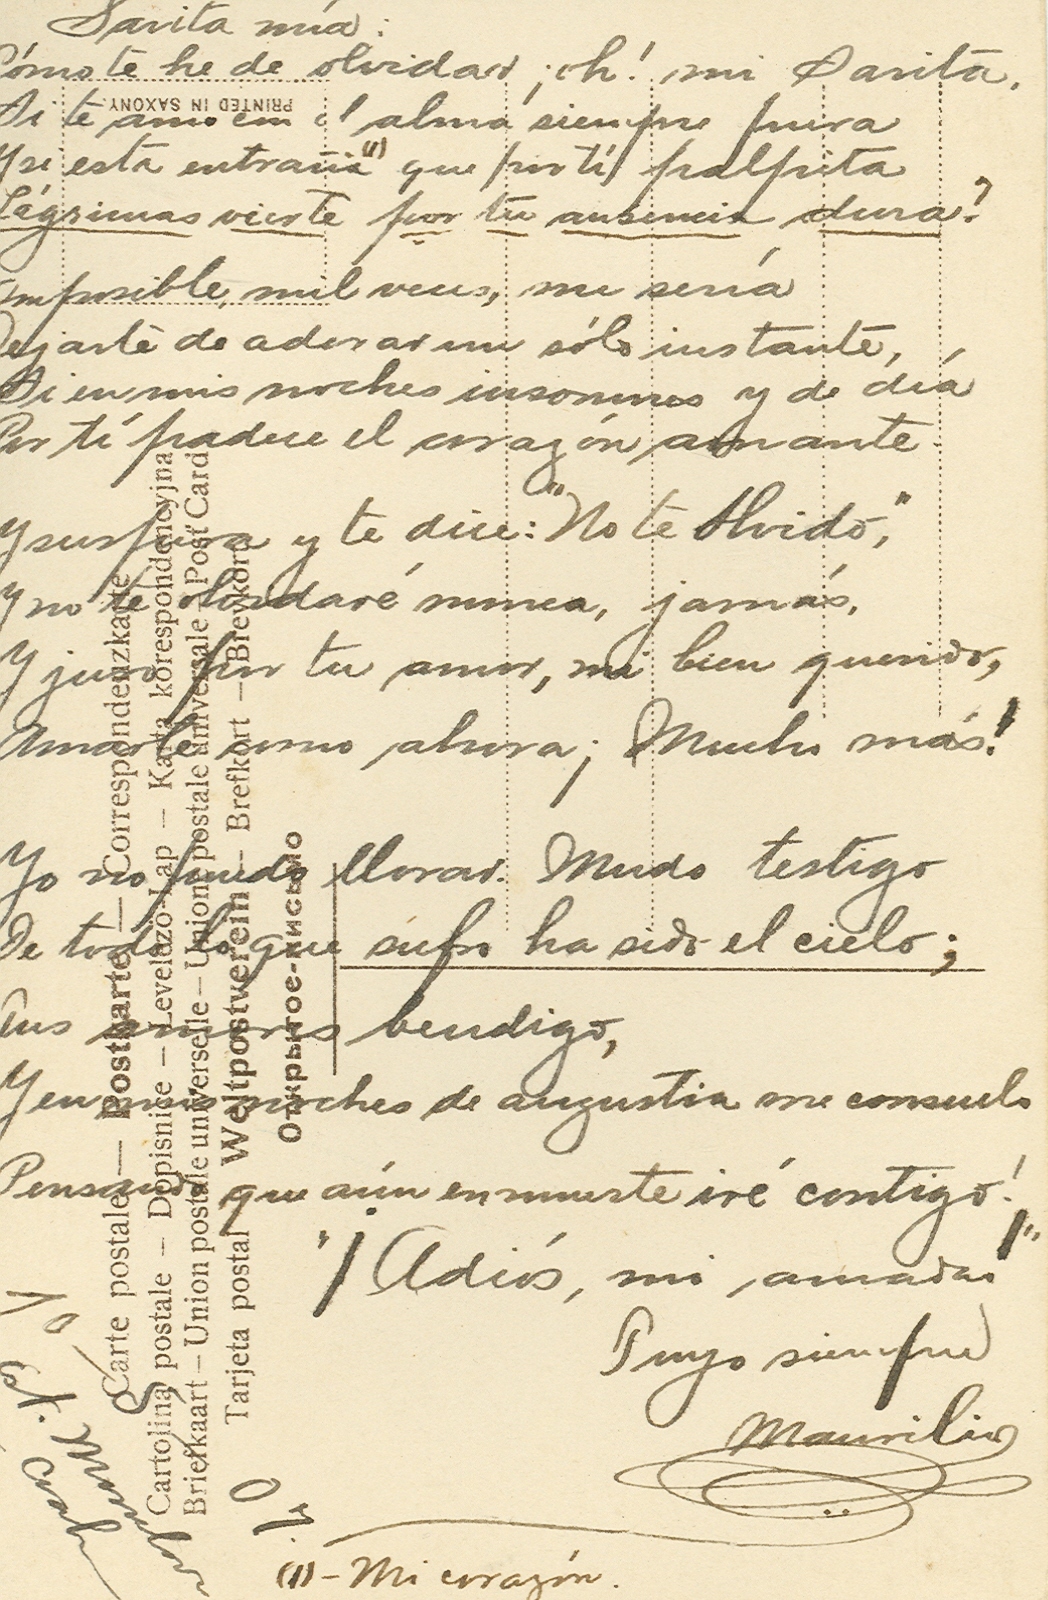 Sarita mía:
Cómo te he de olvidar ¡oh! mi Sarita,
Si te amo em el alma siempre pura
Y si esta entraña (1) que por tí palpita
Lágrimas vierte por tu ausencia dura?
Imposible, mil veces, me sería
Dejarte de adorar un sólo instante,
Si en mis noches insomnes y de día
Por tí padece el corazón amante.
Y suspira y te dice: "No te Olvido,"
Y no te olvidaré nunca, jamás,
Y juro por tu amor, mi bien querido,
Amarte como ahora; ¡Mucho más!
Yo no puedo llorar. Mudo testigo
De todo lo que sufro ha sido el cielo;
Tus amores bendigo,
Y en mis noches de angustia me consuelo
Pensando que aún en muerte iré contigo!
"¡Adiós, mi amada!"
Tuyo siempre
Maurilio
(1) - Mi corazón.
PRINTED IN SAXONY.
Carte postale — Postkarte — Correspondenzkarte
Cartolina postale — Dopisnice — Levelezö-Lap — Karta korespondencyjna
Briefkaart — Union postale universelle — Unione postale universale — Post Card
Tarjeta postal Weltpostverein — Brefkort — Brevkort
Открытое-письмо